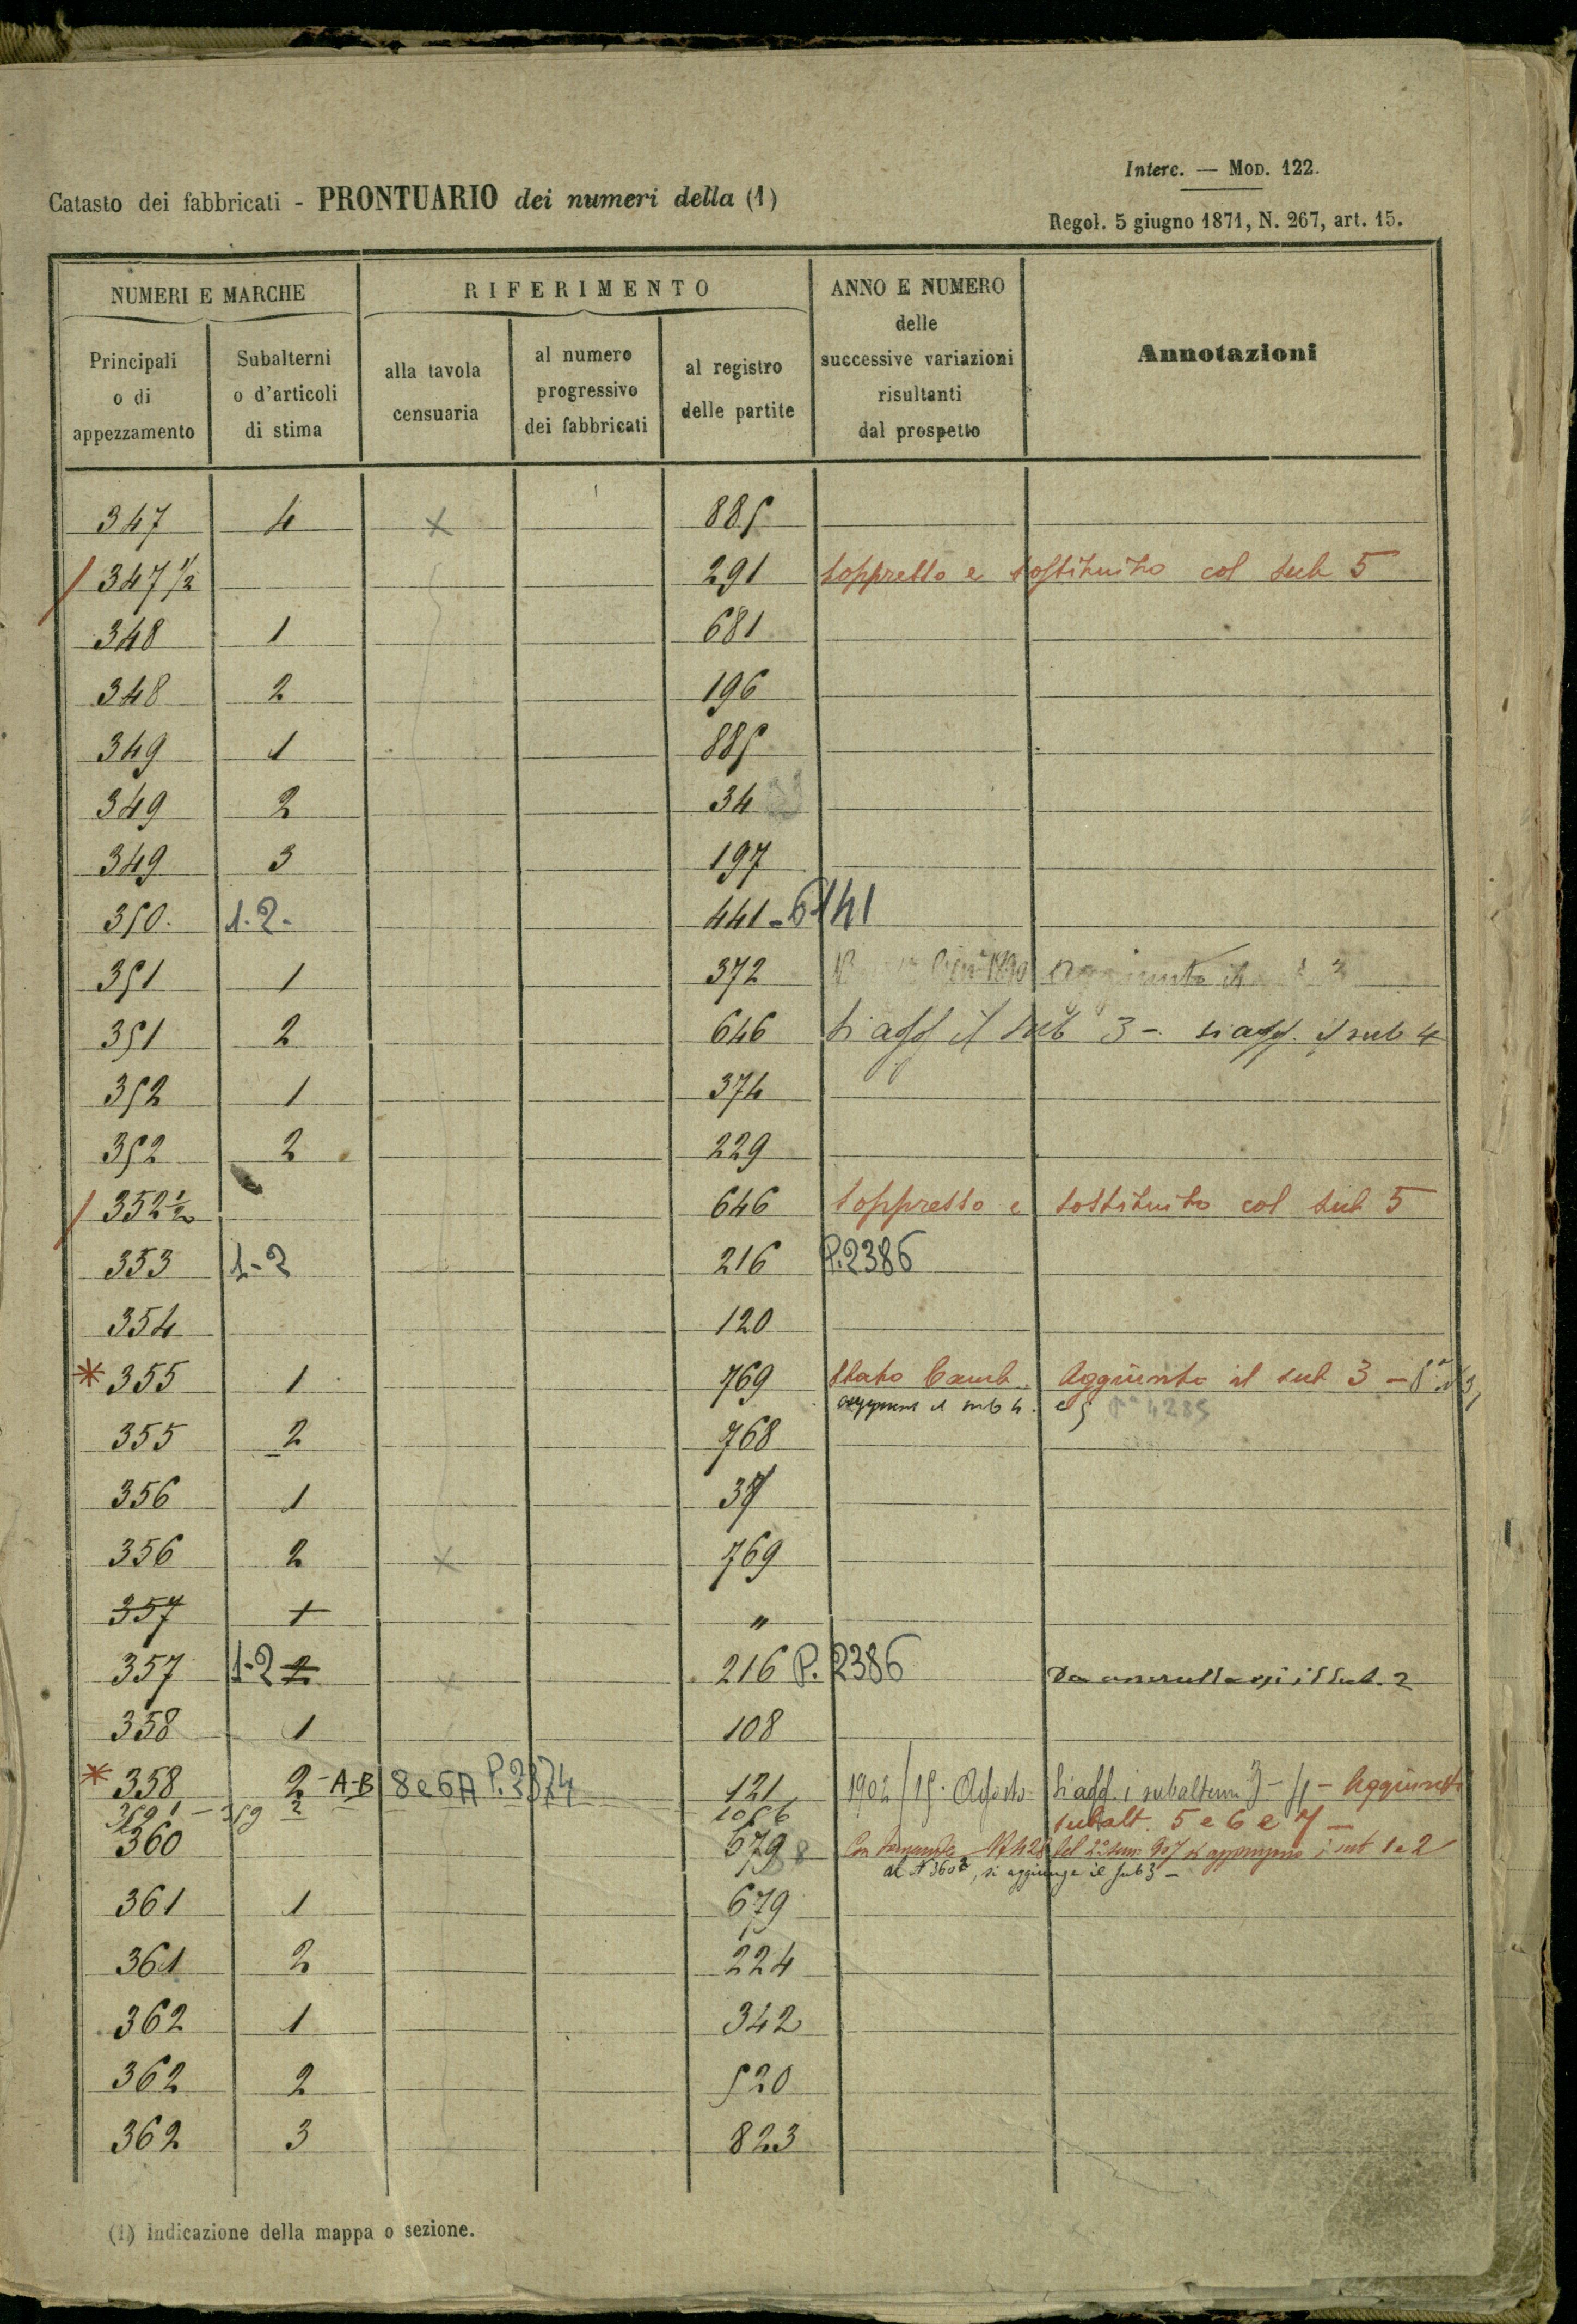 Interc. — Mod. 122.
Catasto dei fabbricati - PRONTUARIO dei numeri della (1)
Regol. 5 giugno 1871, N. 267, art. 15.
NUMERI E MARCHE
RIFERIMENTO
ANNO E NUMERO delle successive variazioni risultanti dal prospetto
Annotazioni
Principali o di appezzamento
Subalterni o d'articoli di stima
alla tavola censuaria
al numero progressivo dei fabbricati
al registro delle partite
347 4 x 885
/ 347 1/2 291 soppresso e sostituito col sub 5
348 1 681
348 2 196
349 1 885
349 2 34
349 3 197
350. 1.2. 441-6141
351 1 372 1890 aggiunto 3
351 2 646 si agg il sub 3 - si agg. il sub 4
352 1 374
352 2 229
/ 352 1/2 646 soppresso e sostituito col sub 5
353 1-2 216 P.2386
354 120
* 355 1 769 Stato Camb. Aggiunto il sub 3 -
il sub 4. e 5 4285
355 2 768
356 1 37
356 2 x 769
357 1 "
357 1-2 2 x 216 P. 2386 Da annullarsi il sub. 2
358 1 108
* 358 2-A-B 8 e 6A P.2874 121 1902/15. Agosto si agg. i subalterni 3-4 - Aggiunti
359 1 - 359 2 1056 subalt. 5 e 6 e 7 -
360 679 Con domanda N 428 del 2° sem 907 si aggiungono i sub 1 e 2
al N 360 2, si aggiunge il sub 3 -
361 1 679
361 2 224
362 1 342
362 2 520
362 3 823
(1) Indicazione della mappa o sezione.